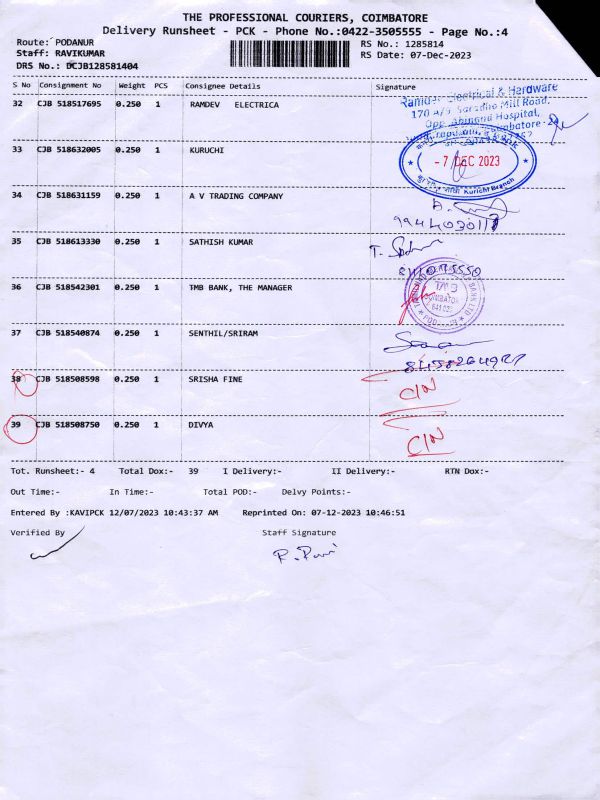 THE PROFESSIONAL COURIERS, COIMBATORE
Delivery Runsheet - PCK - Phone No.:0422-3505555 - Page No.:4
Route: PODANUR
RS No.: 1285814
Staff: RAVIKUMAR
RS Date: 07-Dec-2023
DRS No.: DCJB128581404
S No Consignment No Weight PCS Consignee Details Signature
32 CJB 518517695 0.250 1 RAMDEV ELECTRICA
Electrical & Hardware
170 A/5 Mill Road,
Hospital,
33 CJB 518632005 0.250 1 KURUCHI
- 7 DEC 2023
Kurichi Branch
34 CJB 518631159 0.250 1 A V TRADING COMPANY
35 CJB 518613330 0.250 1 SATHISH KUMAR
36 CJB 518542301 0.250 1 TMB BANK, THE MANAGER
TMB
37 CJB 518540874 0.250 1 SENTHIL/SRIRAM
38 CJB 518508598 0.250 1 SRISHA FINE
C/N
39 CJB 518508750 0.250 1 DIVYA
C/N
Tot. Runsheet:- 4 Total Dox:- 39 I Delivery:- II Delivery:- RTN Dox:-
Out Time:- In Time:- Total POD:- Delvy Points:-
Entered By :KAVIPCK 12/07/2023 10:43:37 AM Reprinted On: 07-12-2023 10:46:51
Verified By Staff Signature